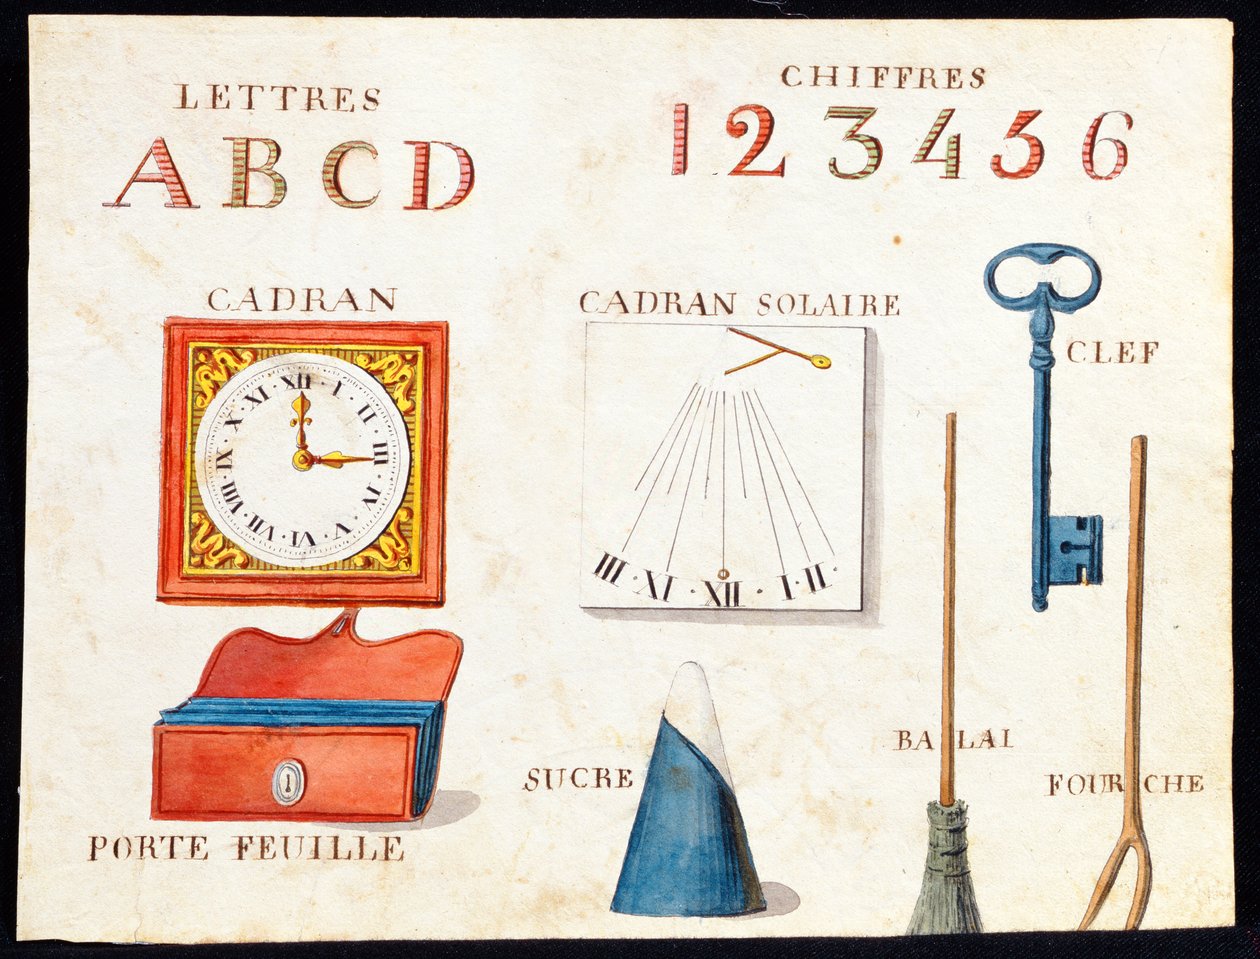 LETTRES
A B C D
CHIFFRES
1 2 3 4 5 6
CADRAN
XII · I · II · III · IV · V · VI · VII · VIII · IX · X · XI ·
CADRAN SOLAIRE
III · XI · XII · I · II ·
CLEF
PORTE FEUILLE
SUCRE
BALAI
FOURCHE